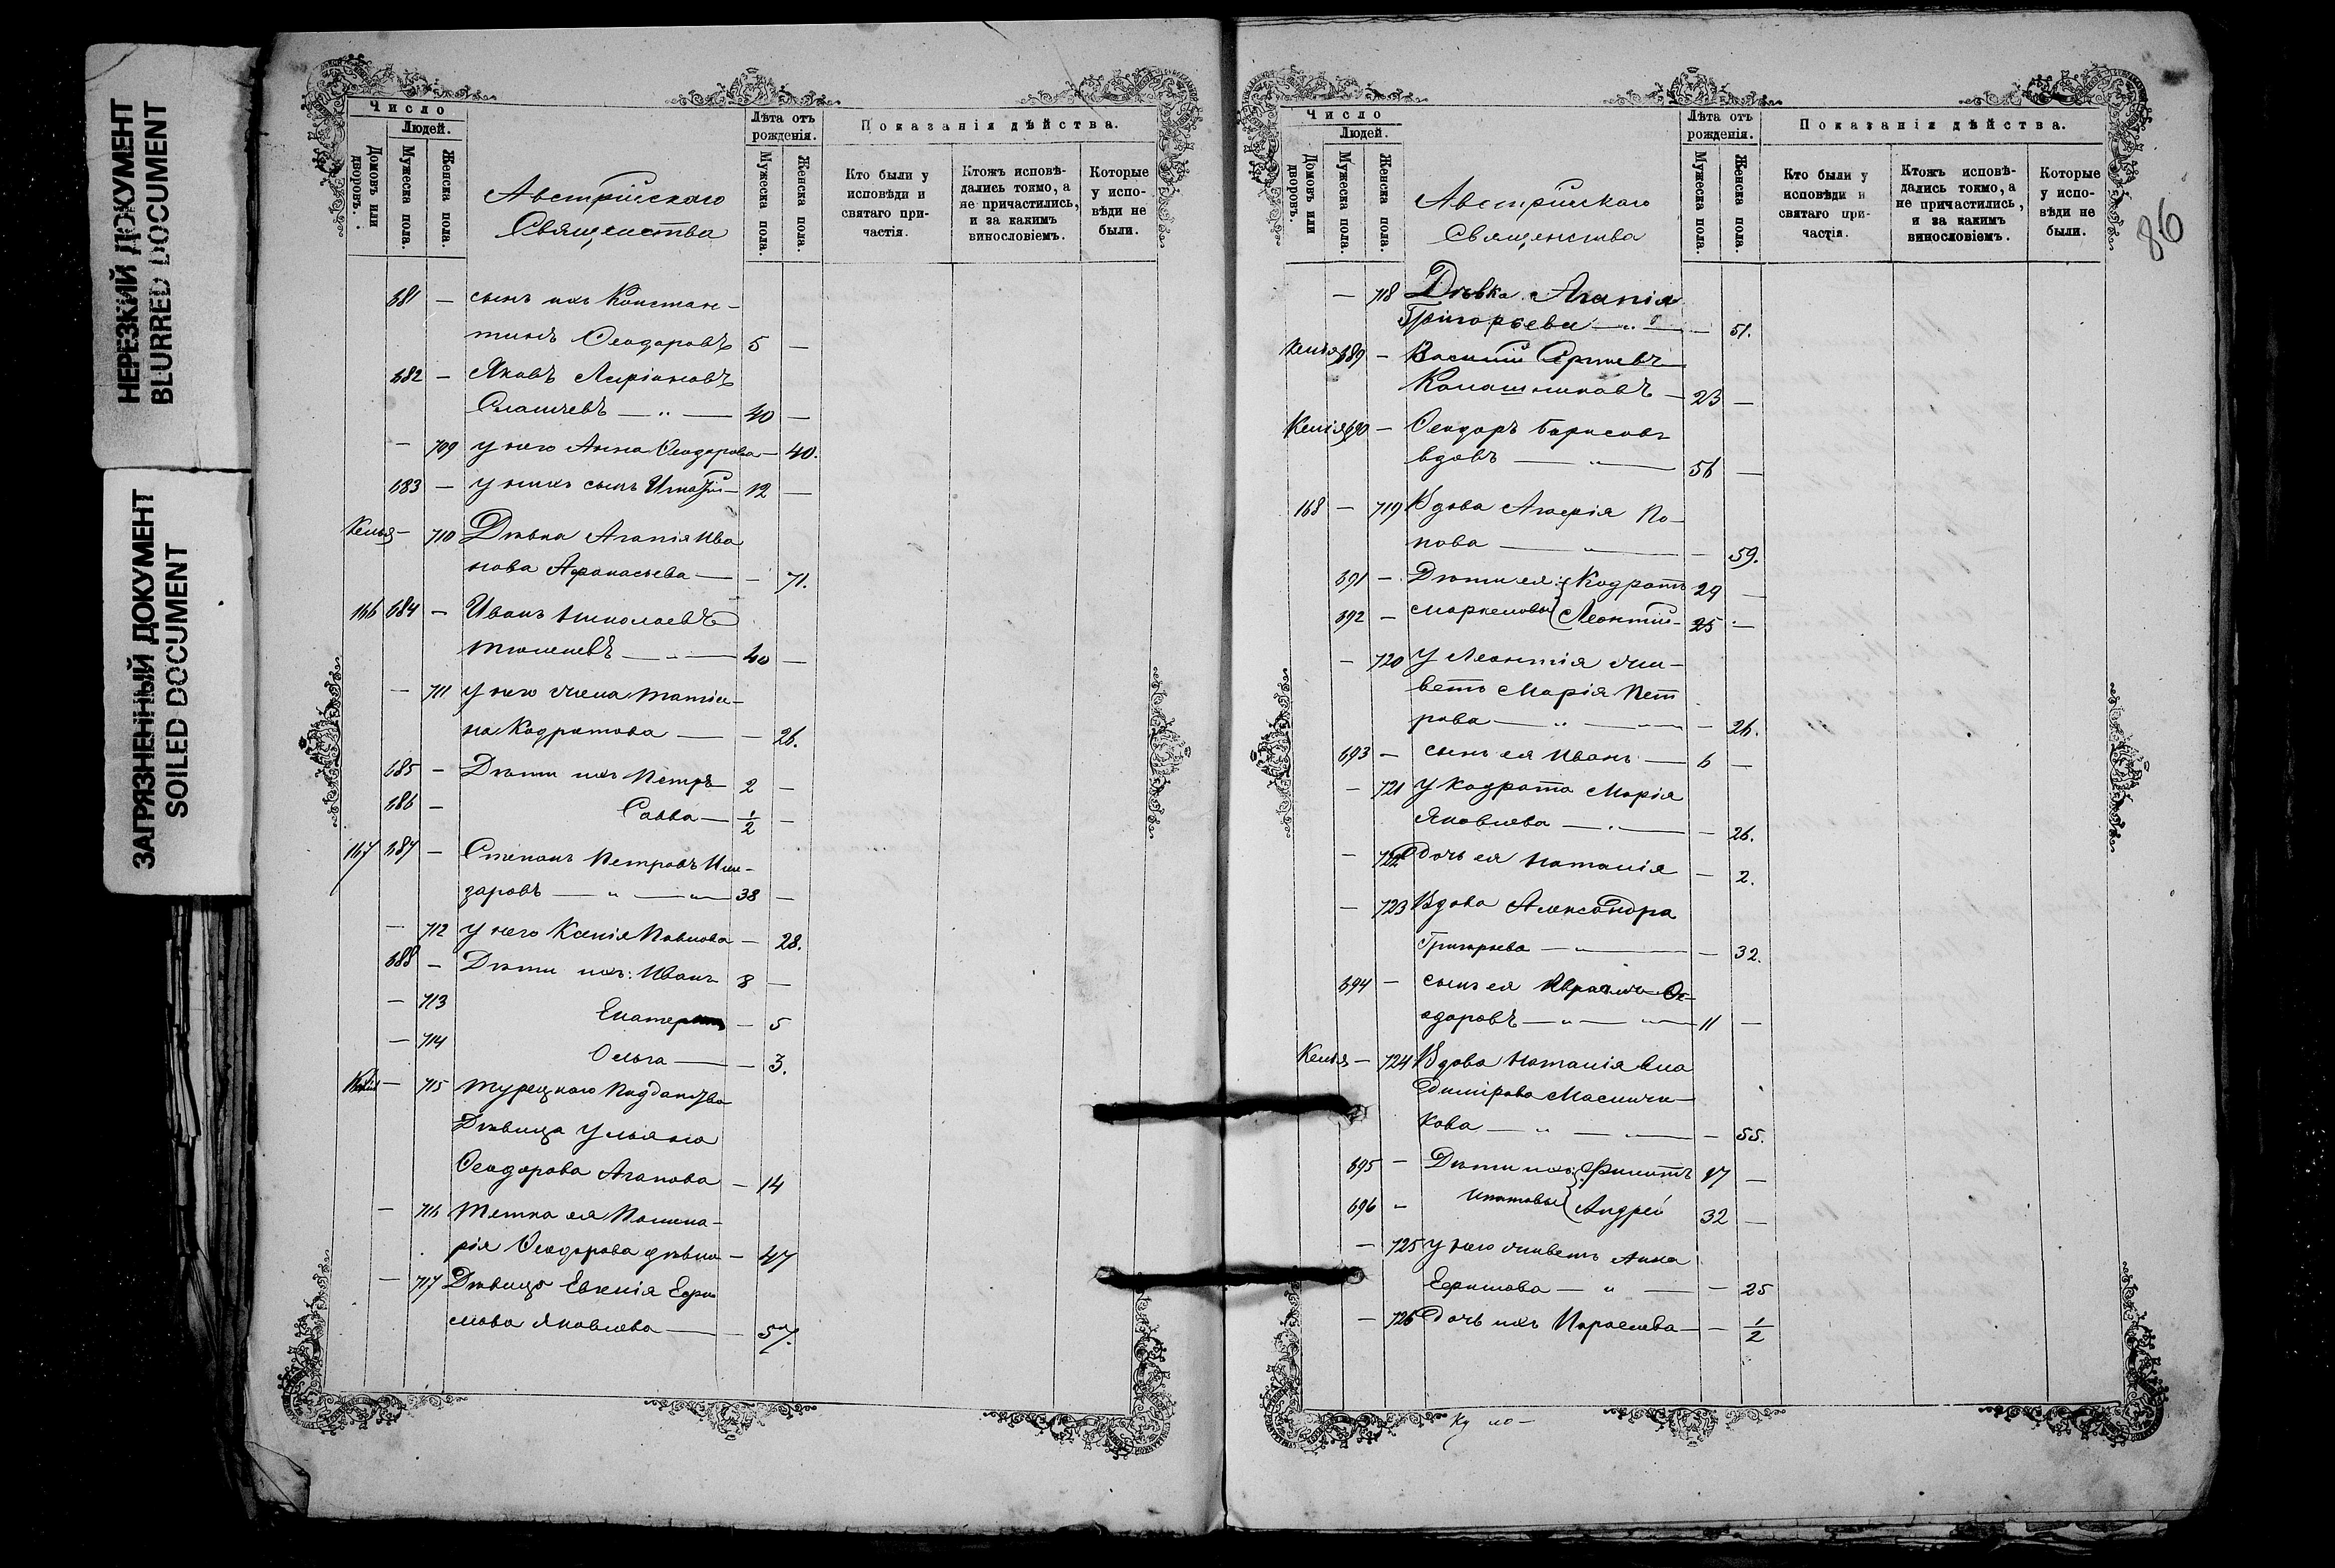 НЕРЕЗКИЙ ДОКУМЕНТ
BLURRED DOCUMENT
ЗАГРЯЗНЕННЫЙ ДОКУМЕНТ
SOILED DOCUMENT
Число
Людей.
Домовъ или дворовъ.
Мужеска пола.
Женска пола.
Австрійскаго
Священства
Лѣта отъ рожденія.
Мужеска пола.
Женска пола.
Показанія дѣйства.
Кто были у исповѣди и святаго причастія.
Ктожъ исповѣдались токмо, а не причастились, и за какимъ винословіемъ.
Которые у исповѣди не были.
681 — сынъ ихъ Констан-
тинъ Ѳеодоровъ 5 —
682 — Яковъ Ларіоновъ
40 —
— 709 у него Анна Ѳеодорова — 40.
683 — у нихъ сынъ Игнатій — 12 —
Келья — 710 Дѣвка Агапія Ива
нова Афанасьева — — 71.
166 684 — Иванъ Николаевъ
40 —
— 711 у него жена Татія-
на Кодратова — — 26.
685 — Дѣти ихъ Петръ 2 —
686 — Савва — 1/2 —
167 687 — Степанъ Петровъ
заровъ — „ — „ — 38 —
— 712 у него Ксенія Павлова — 28.
688 — Дѣти ихъ: Иванъ 8 —
— 713 — 5
— 714 Ольга — — 3.
— 715 Турецкого
Дѣвица Ульяна
Ѳеодорова Агапова — 14
— 716 Тетка ея
рія Ѳеодорова дѣвка — 47
— 717 Дѣвица Евгенія Ефи
мова Яковлева — — 57.
Число
Людей.
Домовъ или дворовъ.
Мужеска пола.
Женска пола.
Австрійскаго
Священства
Лѣта отъ рожденія.
Мужеска пола.
Женска пола.
Показанія дѣйства.
Кто были у исповѣди и святаго причастія.
Ктожъ исповѣдались токмо, а не причастились, и за какимъ винословіемъ.
Которые у исповѣди не были.
86
— 718 Дѣвка Агапія
Григорьева — „ — — 51.
Келья 689 — Василій
Колашниковъ — 23 —
Келія 690 — Ѳеодоръ Борисовъ
вдовъ — „ — 56 —
168 — 719 Вдова По-
пова — „ — — 59.
691 — Дѣти ея: Кодратъ 29 —
692 — Маркеловы Леонтій — 25 —
— 720 У Леонтія жи-
ветъ Марія Пет
рова — „ — „ — — 26.
693 — сынъ ея Иванъ — 6 —
— 721 У Кодрата Марія
Яковлева — „ — — 26.
— 722 дочь ея Наталія — 2.
— 723 Вдова Александра
Григорьева — „ — — 32.
694 — сынъ ея Ѳе-
одоровъ — „ — „ — 11 —
Келья — 724 Вдова Наталія Вла
димірова
кова — „ — „ — — 55.
695 — Дѣти ихъ: —
696 — Андрей 32 —
— 725 у него живетъ Анна
Ефимова — „ — — 25
— 726 дочь ихъ — — 1/2